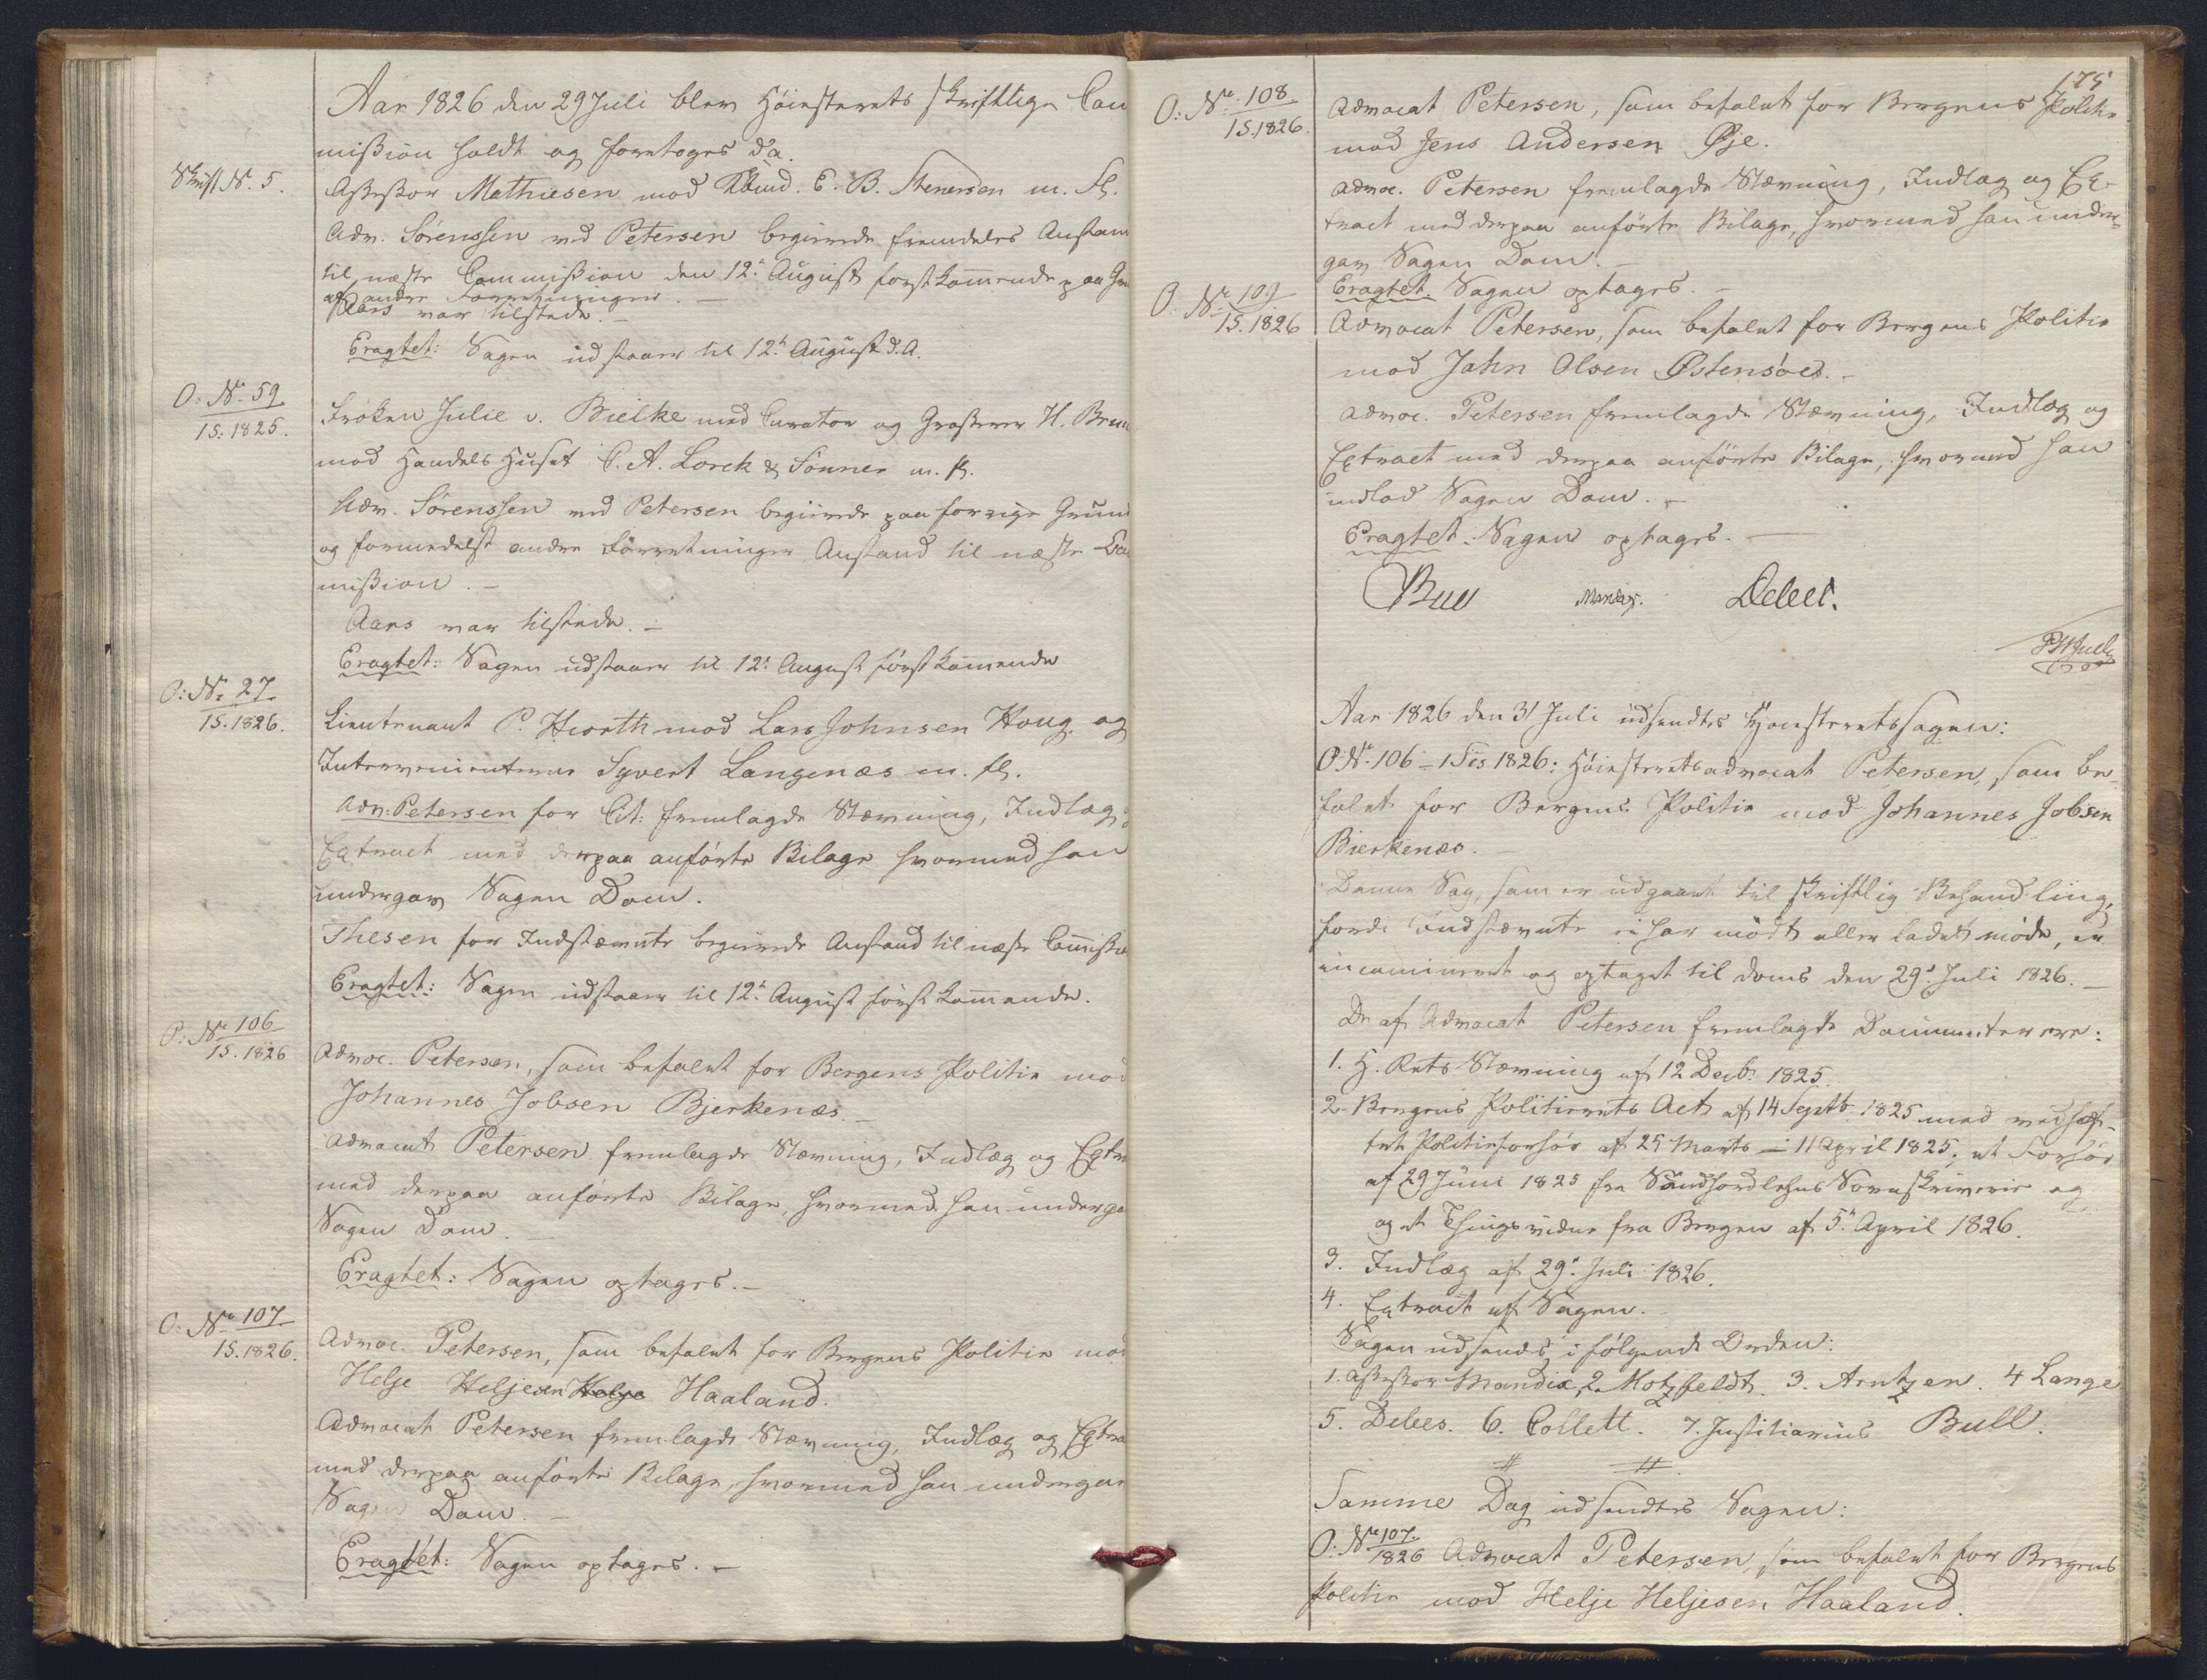 Aar 1826 den 29 Juli blev Höiesterets skriftlige Com
mission holdt og foretoges da.
Skrift. No. 5.
Assessor Mathiesen mod E. B. Stenersen m. fl.
Adv. Sørenssen ved Petersen begierede fremdeles Anstand
til næste Commission den 12te August førstkommende paa Gr
af andre Forretninger. –
Aars var tilstede. –
Eragtet: Sagen udstaaer til 12te August d. A.
O: No. 59
1S. 1825.
Frøken Julie v. Bielke med Curator og Grosserer H. Bruun
mod Handels Huset C. A. Lorck & Sønner m. fl.
Adv. Sørenssen ved Petersen begierede paa forrige Grund
og formedelst andre Forretninger Anstand til næste Com
mission. –
Aars var tilstede. –
Eragtet: Sagen udstaaer til 12te August først kommende
O: No. 27
1S. 1826.
Lieutenant P. Hiorth mod Lars Johnsen Houg og
Intervenienterne Syvert Langenæs m. fl.
Adv: Petersen for Cit: fremlagde Stævning, Indlæg og
Extract med derpaa anførte Bilage hvormed han
undergav Sagen Dom.
Thesen for Indstævnte begierede Anstand til næste Commission
Eragtet: Sagen udstaaer til 12te August først kommende.
O: No 106
1S. 1826
Advoc. Petersen, som befalet for Bergens Politie mod
Johannes Jobsen Bjerkenæs. –
Advocat Petersen fremlagde Stævning, Indlæg og Extra
med derpaa anførte Bilage, hvormed han underga
Sagen Dom. –
Eragtet: Sagen optages. –
O: No 107
1S. 1826.
Advoc. Petersen, som befalet for Bergens Politie mod
Helje Heljesen Helje Haaland.
Advocat Petersen fremlagde Stævning, Indlæg og Extra
med derpaa anførte Bilage, hvormed han undergav
Sagen Dom. –
Eragtet: Sagen optages. –
175
O: No. 108
1S. 1826.
Advocat Petersen, som befalet for Bergens Politie
mod Jens Andersen Øje.
Advoc. Petersen fremlagde Stævning, Indlæg og Ex-
tract med derpaa anførte Bilage, hvormed han under-
gav Sagen Dom. –
Eragtet. Sagen optages. –
O. No 109
1S. 1826
Advocat Petersen, som befalet for Bergens Politie
mod Jahn Olsen Østensöe. –
Advoc. Petersen fremlagde Stævning, Indlæg og
Extract med derpaa anførte Bilage, hvormed han
indlod Sagen Dom. –
Eragtet. Sagen optages. –
Bull Mandix. Debes.
Aar 1826 den 31 Juli udsendtes Höiesteretssagen:
O No. 106 – 1 Ses. 1826: Höiesteretsadvocat Petersen, som be-
falet for Bergens Politie mod Johannes Jobsen
Bierkenæs. –
Denne Sag, som er udgaaet til skriftlig Behandling,
fordi Indstævnte ei har mödt eller ladet möde, er
incamineret og optaget til Doms den 29de Juli 1826. –
De af Advocat Petersen fremlagde Documenter ere:
1. H. Rets Stævning af 12 Decb. 1825.
2. Bergens Politierets Act af 14 Septb. 1825 med vedhæf-
tet Politieforhör af 25 Marts – 11 April 1825, et Forhör
af 29 Juni 1825 fra Söndhordlehns Sorenskriverie og
og et Thingsvidne fra Bergen af 5te April 1826.
3. Indlæg af 29de Juli 1826.
4. Extract af Sagen.
Sagen udsendes i fölgende Orden:
1. Assessor Mandix, 2. Motzfeldt. 3. Arntzen. 4 Lange
5. Debes. 6. Collett. 7. Justitiarius Bull.
Samme Dag udsendtes Sagen:
O: No 107.
1826 Advocat Petersen, som befalet for Bergens
Politie mod Helje Heljesen Haaland.